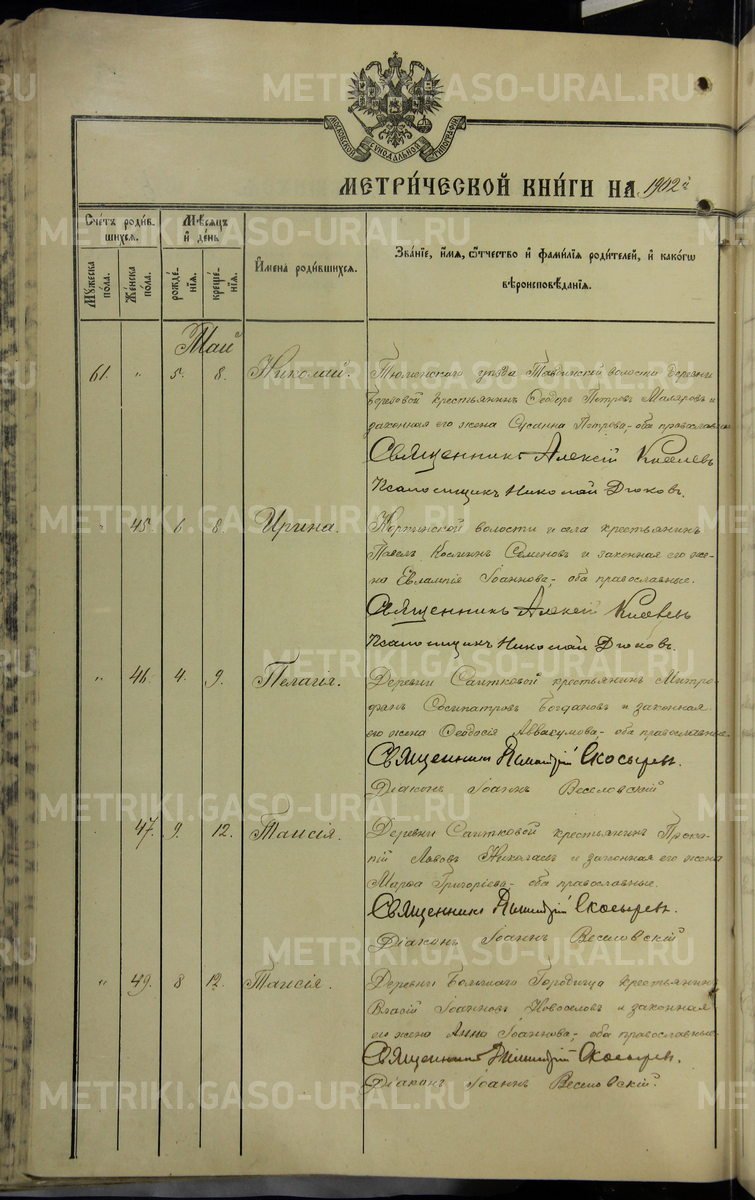 МОСКОВСКОЙ СѴНОДАЛЬНОЙ ТИПОГРАФІИ
МЕТРИ́ЧЕСКОЙ КНИ́ГИ НА 1902й
Сче́тъ роди́в-
шихся.
Мꙋ́жеска
по́ла.
Же́нска
по́ла.
Мѣ́сяцъ
и҆ де́нь
рожде́-
нїѧ.
креще́-
нїѧ.
И҆мена̀ роди́вшихся.
Зва́нїе, и҆́мѧ, ѻ҆́тчество и҆ фами́лїѧ роди́телей, и҆ како́гѡ
вѣроисповѣ́данїѧ.
Май
61. " 5. 8. Николай. Тюменскаго уѣзда Тавдинской волости деревни
Березовой крестьянинъ Ѳеодоръ Петровъ Маляровъ и
законная его жена Сусанна Петрова, оба православные.
Священникъ Алексій Киселевъ
Псаломщикъ Николай Дюковъ.
" 45. 6. 8. Ирина. волости и села крестьянинъ
Павелъ Космин Семеновъ и законная его же-
на Евлампія Іоаннова, оба православные.
Священникъ Алексій Киселевъ
Псаломщикъ Николай Дюковъ.
" 46. 4. 9. Пелагія. Деревни Саитковой крестьянинъ Митро-
фанъ Сосипатровъ Богдановъ и законная
его жена Ѳеодосія Аввакумова, оба православные.
Священникъ Димитрій Скосыревъ.
Діаконъ Іоаннъ Веселовскій
47. 9. 12. Таисія. Деревни Саитковой крестьянинъ Проко-
пій Львовъ Николаевъ и законная его жена
Марѳа Григоріева, оба православные.
Священникъ Димитрій Скосыревъ.
Діаконъ Іоаннъ Веселовскій
" 49. 8 12. Таисія. Деревни Большаго Городища крестьянинъ
Власій Іоанновъ Новоселовъ и законная
его жена Анна Іоаннова, оба православные.
Священникъ Димитрій Скосыревъ.
Діаконъ Іоаннъ Веселовскій.
METRIKI.GASO-URAL.RU